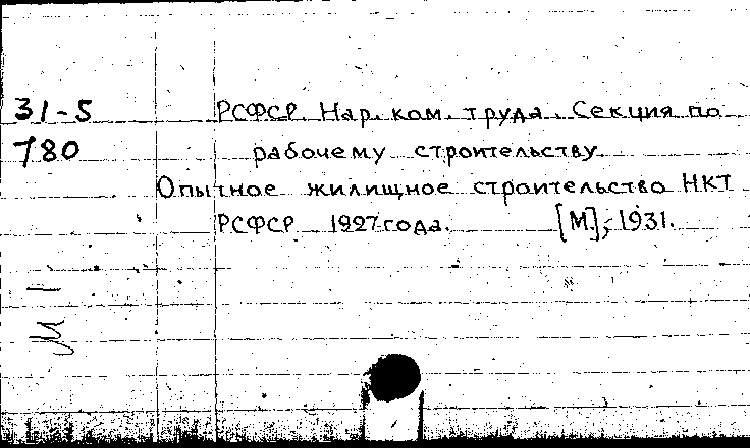 31-5 РСФСР. Нар. ком. труда. Секция по
780 рабочему строительству
Опытное жилищное строительство НКТ
РСФСР 1927 года. [М], 1931.